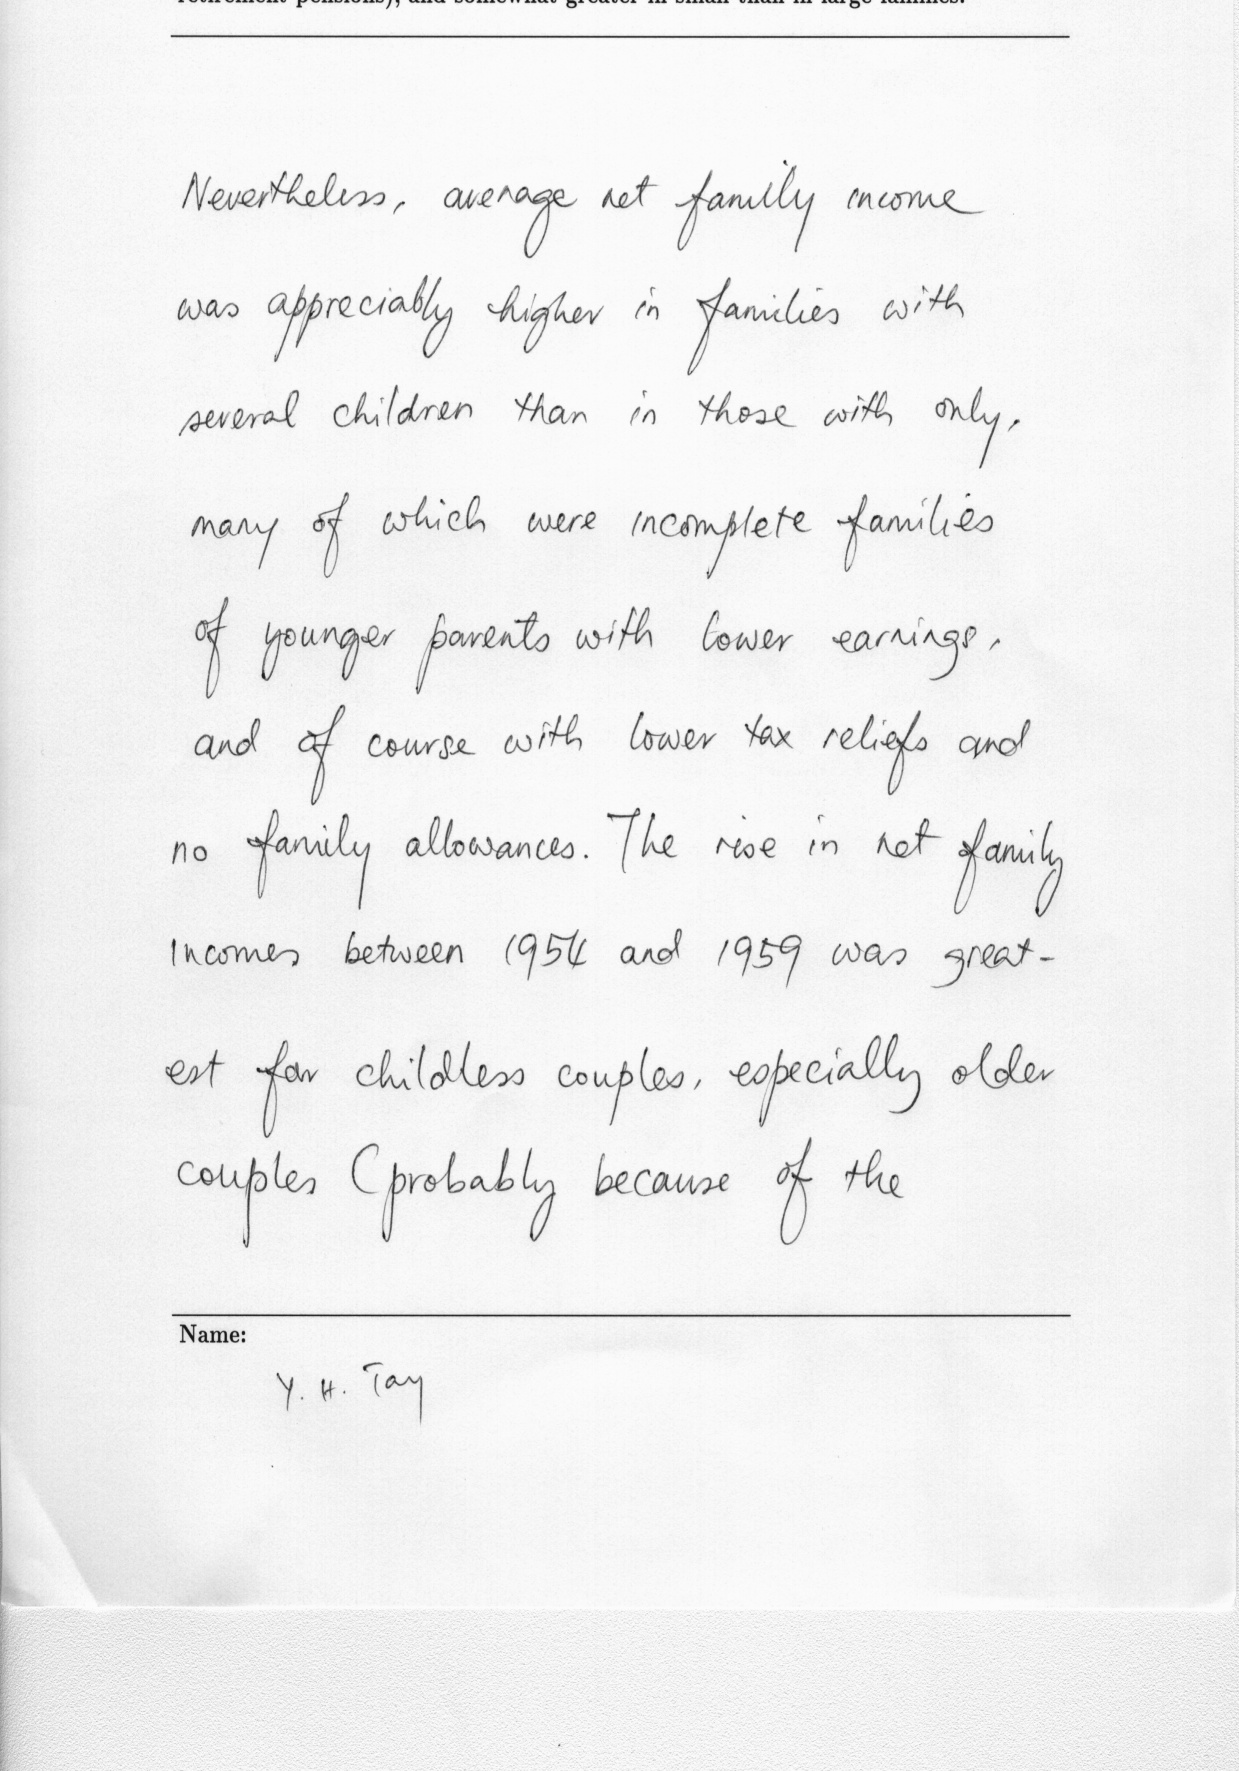 retirement pensions), and somewhat greater in small than in large families.
Nevertheless, average net family income
was appreciably higher in families with
several children than in those with only,
many of which were incomplete families
of younger parents with lower earnings,
and of course with lower tax reliefs and
no family allowances. The rise in net family
incomes between 1954 and 1959 was great-
est for childless couples, especially older
couples (probably because of the
Name:
Y. H. Tay